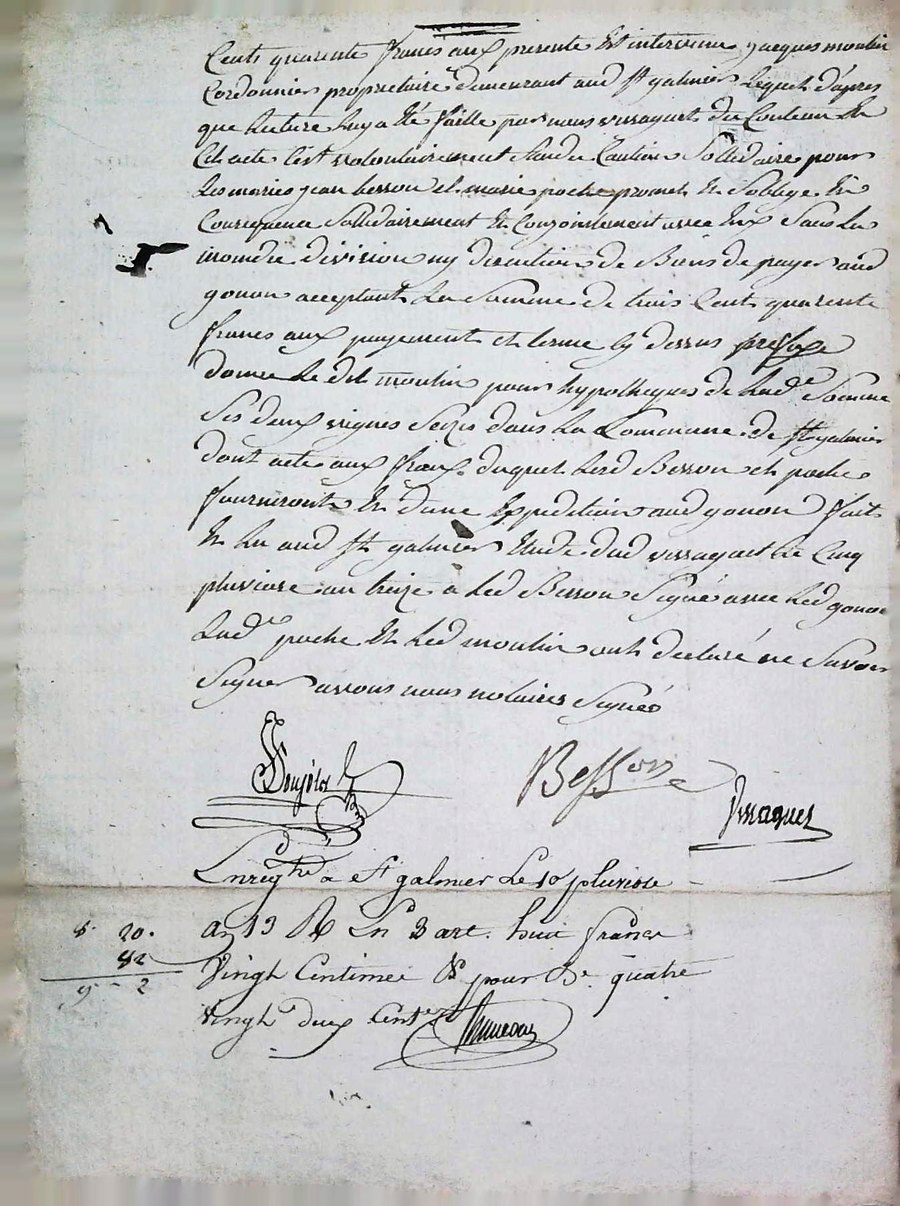 Cents quarente francs aux presente Est intervenu jacques moulin
Cordonnier proprietaire demeurant aud St galmier Lequel d'apres
que lecture luy a Eté faitte par nous vissaguet du Contenu En
Cet acte C'est volontairement Rendu Caution Sollidaire pour
Les mariés jean besson et marie poche promet Et S'oblige En
Consequence Sollidairement Et Conjointement avec Eux Sans La
moindre division ny discution de Biens de payer aud
gonon acceptant La Somme de trois Cent quarente
francs aux payement et terme Cy dessus prefixe
donne Le dit moulin pour hypotheques de Lade Somme
Ses deux vignes Scizes dans La Commune de St galmier
dont acte aux fraix duquel Lesd Besson et poche
fourniront Et d'une Expedition aud gonon fait
Et Lu aud St galmier Etude dud vissaguet Le Cinq
pluviose an treize a Led Besson Signé avec Led gonon
Lade poche Et Led moulin ont declaré ne Savoir
Signer avons nous notaires Signés
Besson
Vissaguet
Enregtre a St galmier Le 10 pluviose
8. 20. an 13 Rc En 3 art. huit francs
82 Vingt Centimes & pour Se quatre
9 - 2 vingt deux Centes